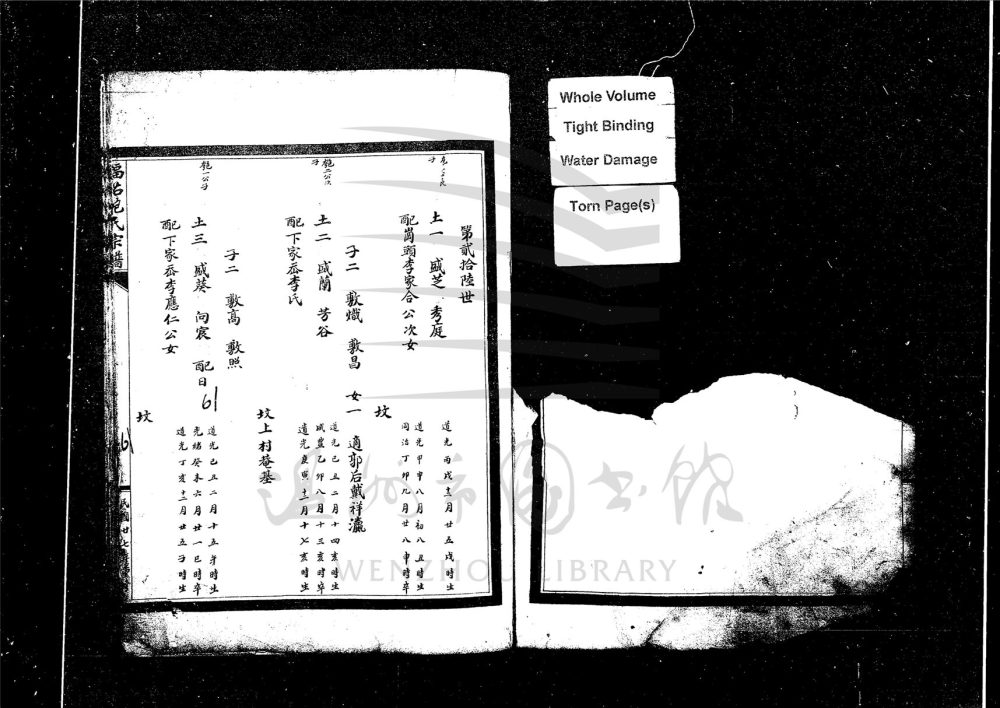 Whole Volume
Tight Binding
Water Damage
Torn Page(s)
第貳拾陸世
土一 盛芝 秀庭
道光丙戌十二月廿五戌時生
道光甲申八月初八丑時生
配崗頭李家合公次女
同治丁卯九月廿八申時卒
坟
子二 敷熾 敷昌 女一 適郭后戴祥瀛
土二 盛蘭 芳谷
道光己丑二月十四亥時生
咸豐乙卯八月十三亥時卒
配下家岙李氏
道光庚寅十一月十七亥時生
坟上村巷基
子二 敷高 敷照
土三 盛葵 向宸 配日
道光己丑二月十五午時生
光緒癸未六月廿一巳時卒
配下家岙李應仁公女
道光丁亥十二月廿五子時生
坟
61
鮑氏宗譜
WENZHOU LIBRARY